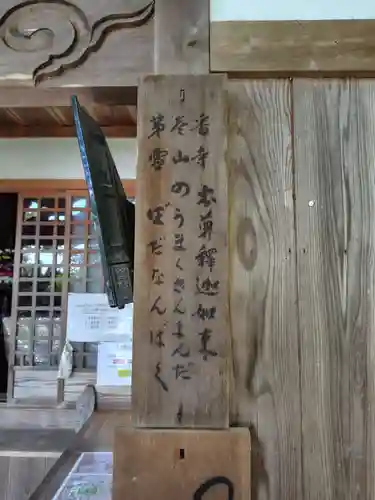 第壱番
霊山寺
本尊釋迦如来
のうまくさんまんだ
ぼだなんばく